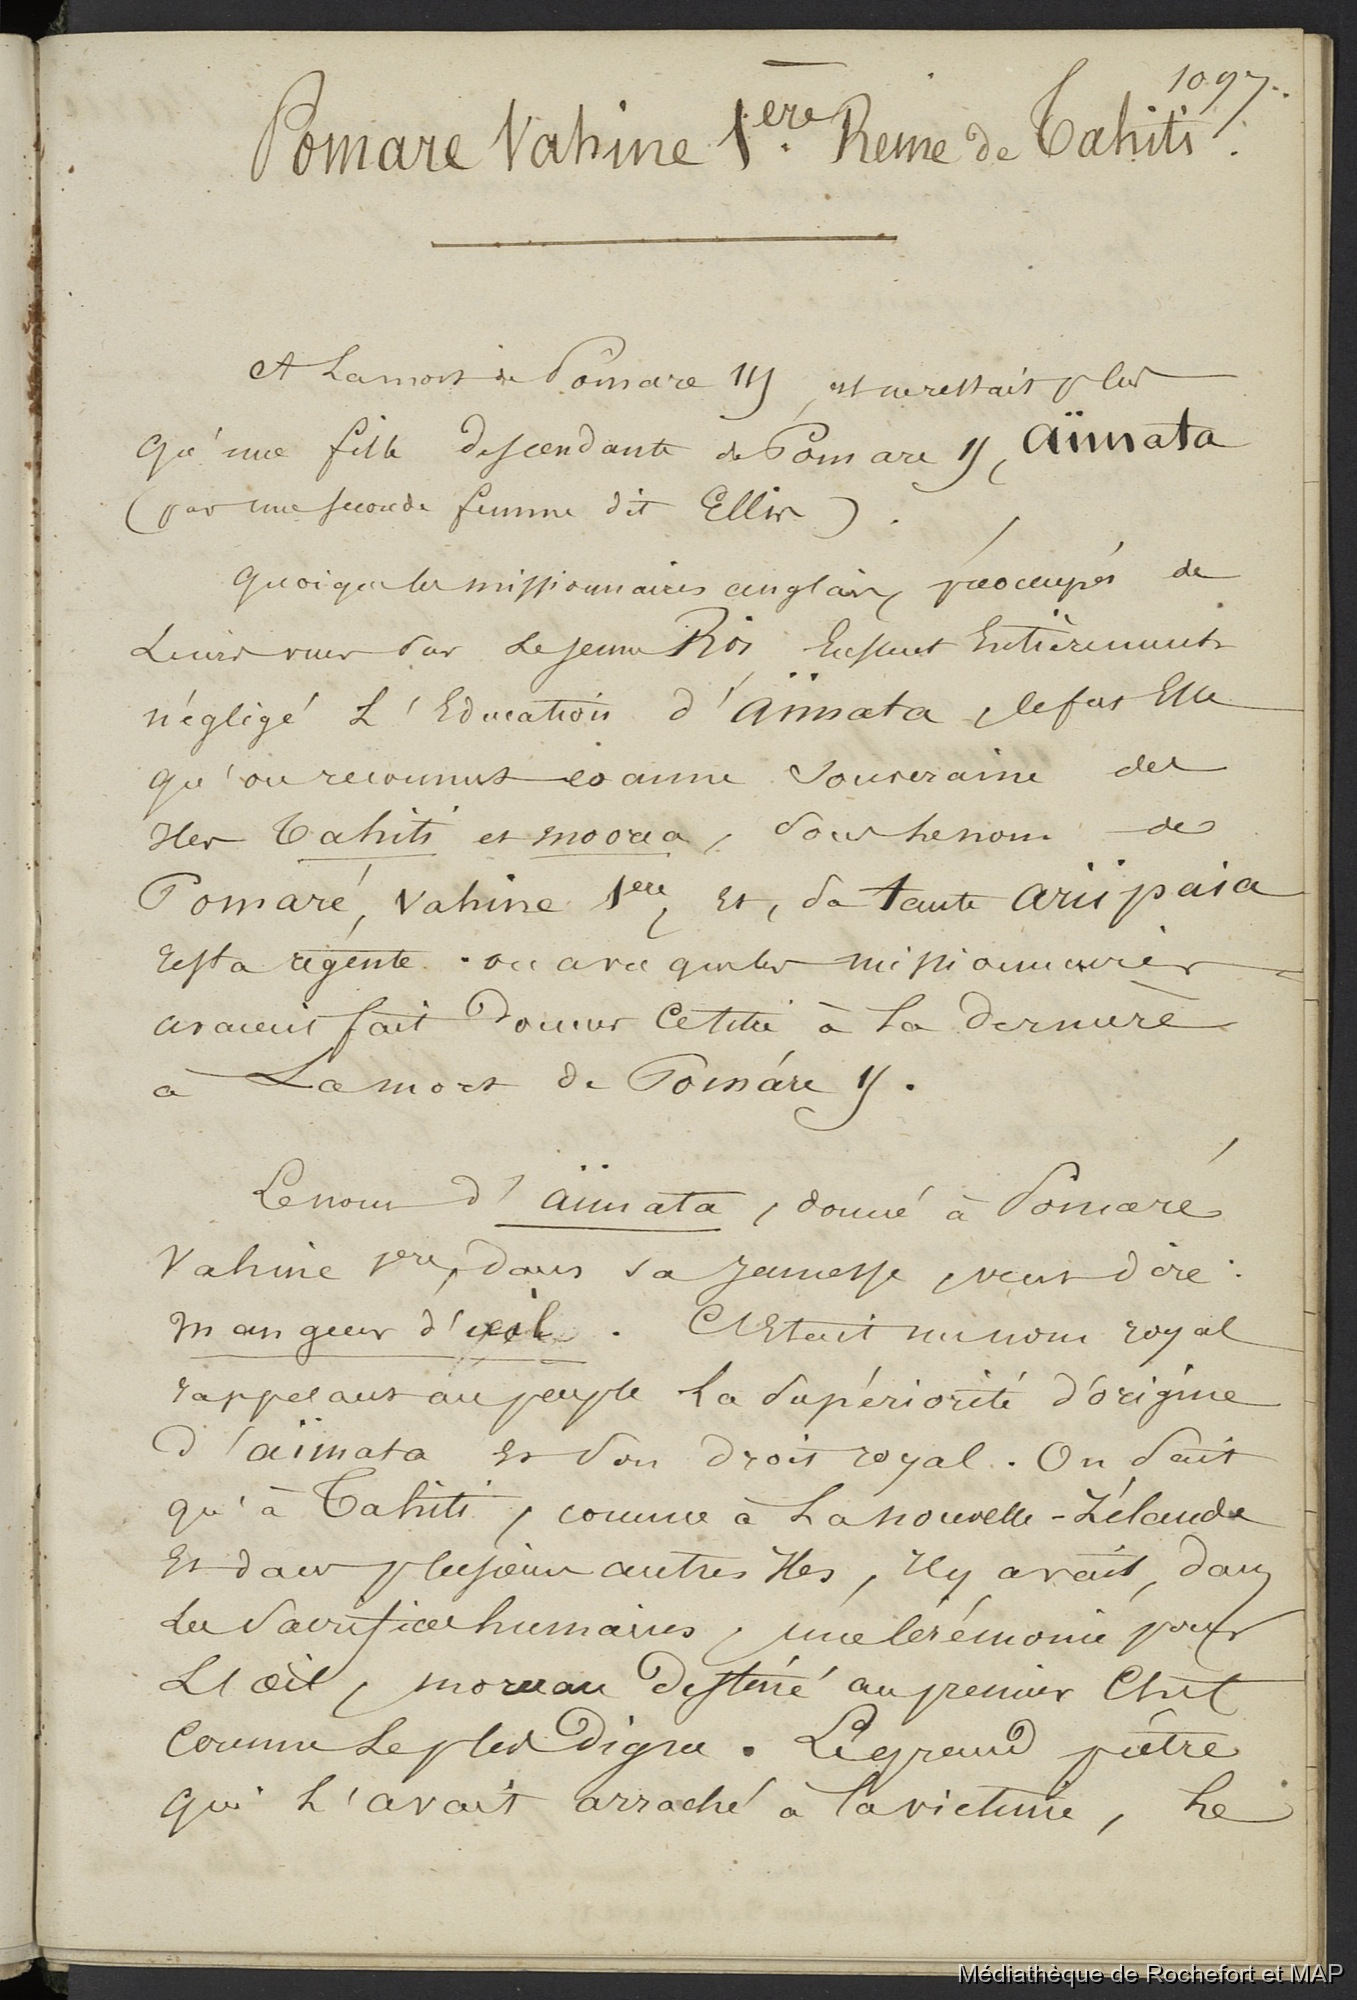 1097.
Pomare Vahine 1ère Reine de Tahiti.
A La mort de Pômare III, il ne restait plus
qu'une fille descendante de Pomare II, Aïmata
(par une seconde femme dit Ellis).
Quoique les missionnaires anglais, préocupés de
Leurs vues sur Le jeune Roi Eussent Entièrement
négligé L'Education d'Aïmata, ce fut Elle
qu'on reconnut comme Souveraine des
Iles Tahiti et Moorea, sous le nom de
Pomaré, Vahine 1ère, Et, sa tante Ariipaia
resta régente. on a vu que les missionnaires
avaient fait Donner Ce titre à La Dernière
à La mort de Pomáre II.
Le nom d'Aïmata, donné à Pomaré
Vahine 1ere, dans sa jeunesse, veut dire :
mangeur d'œil. C'Etait un nom royal
rappelant au peuple La Supériorité d'origine
d'aïmata Et Son droit royal. On Sait
qu'à Tahiti, comme à La nouvelle-Zélande
Et dans plusieurs autres Iles, Il y avait, dans
Les Sacrifices humains, une Cérémonie pour
L'œil, morceau Destiné au premier Chef
Comme Le plus Digne. Le grand prêtre
qui L'avait arraché à la victime, Le
Médiathèque de Rochefort et MAP